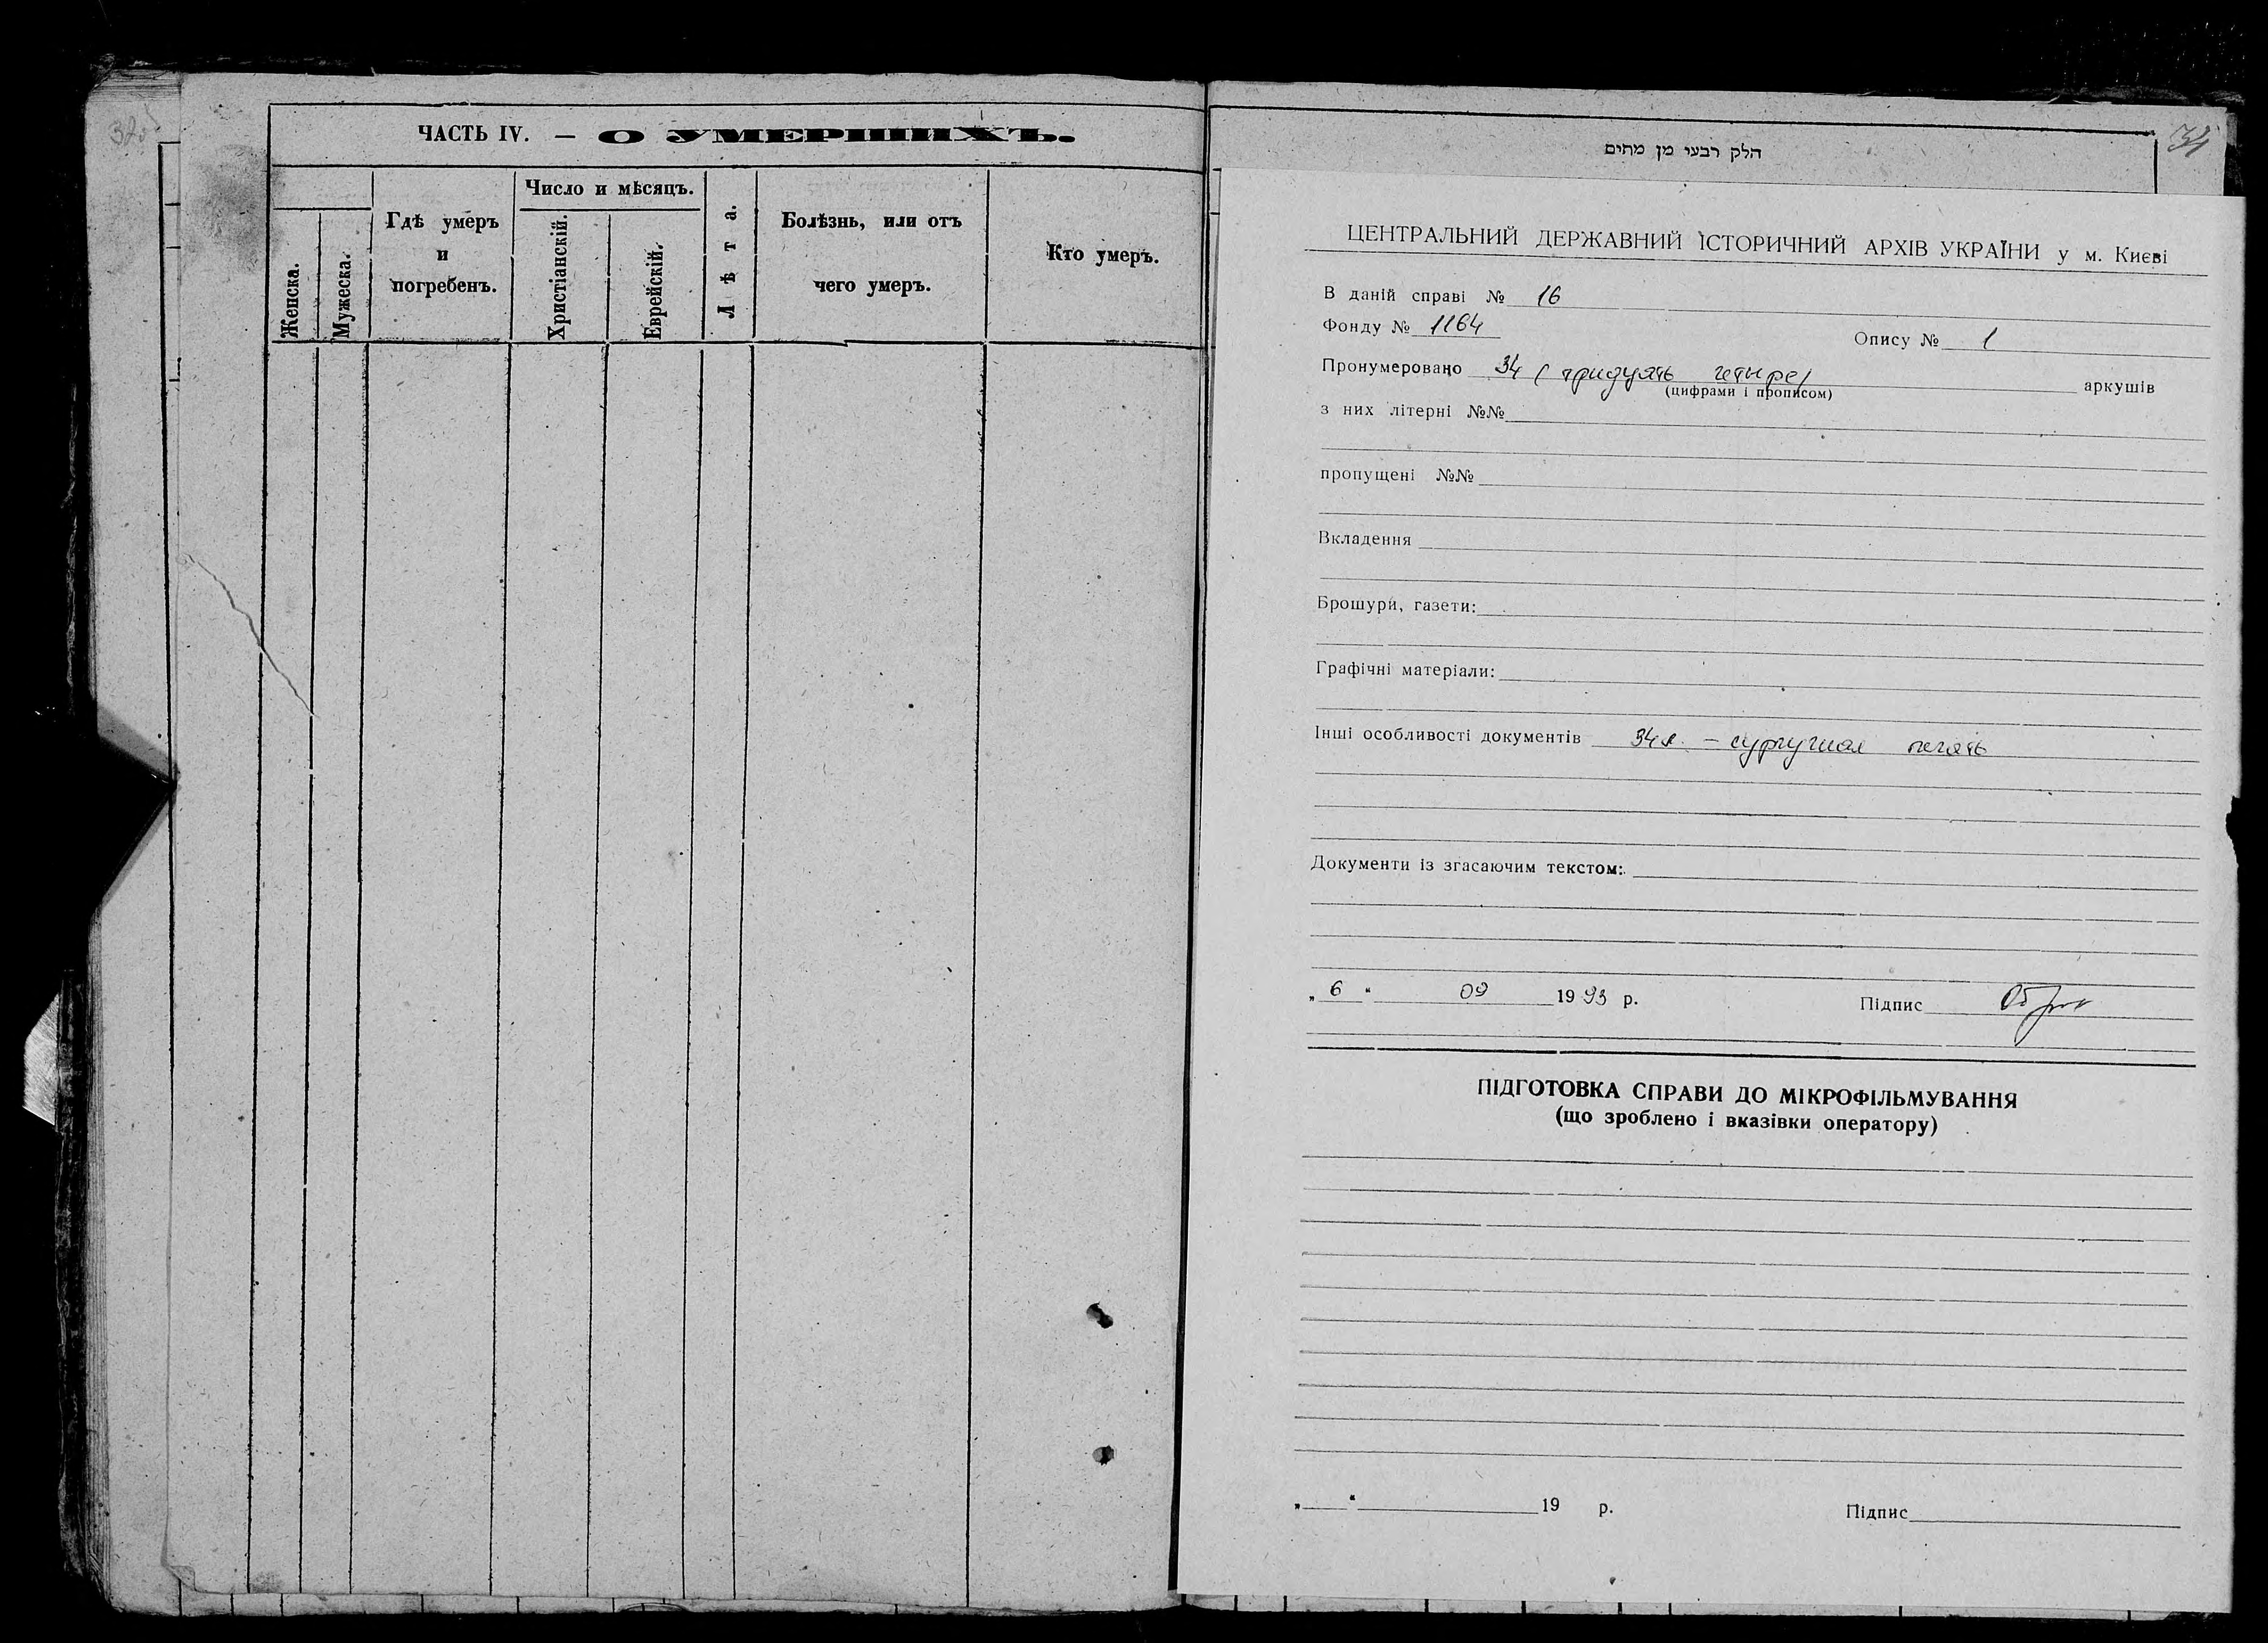 ЧАСТЬ IV. — О УМЕРШИХЪ.
Женска.
Мужеска.
Гдѣ умеръ
и
погребенъ.
Число и мѣсяцъ.
Христіанскій.
Еврейскій.
Лѣта.
Болѣзнь, или отъ
чего умеръ.
Кто умеръ.
34
הלק רבעי מן מתים
ЦЕНТРАЛЬНИЙ ДЕРЖАВНИЙ ІСТОРИЧНИЙ АРХІВ УКРАЇНИ у м. Києві
В даній справі № 16
Фонду № 1164 Опису № 1
Пронумеровано 34 (тридцять четыре) аркушів
(цифрами і прописом)
з них літерні №№
пропущені №№
Вкладення
Брошури, газети:
Графічні матеріали:
Інші особливості документів 34л. – сургучная печать
Документи із згасаючим текстом:
„ 6 “ 09 19 93 р. Підпис
ПІДГОТОВКА СПРАВИ ДО МІКРОФІЛЬМУВАННЯ
(що зроблено і вказівки оператору)
„ “ 19 р. Підпис